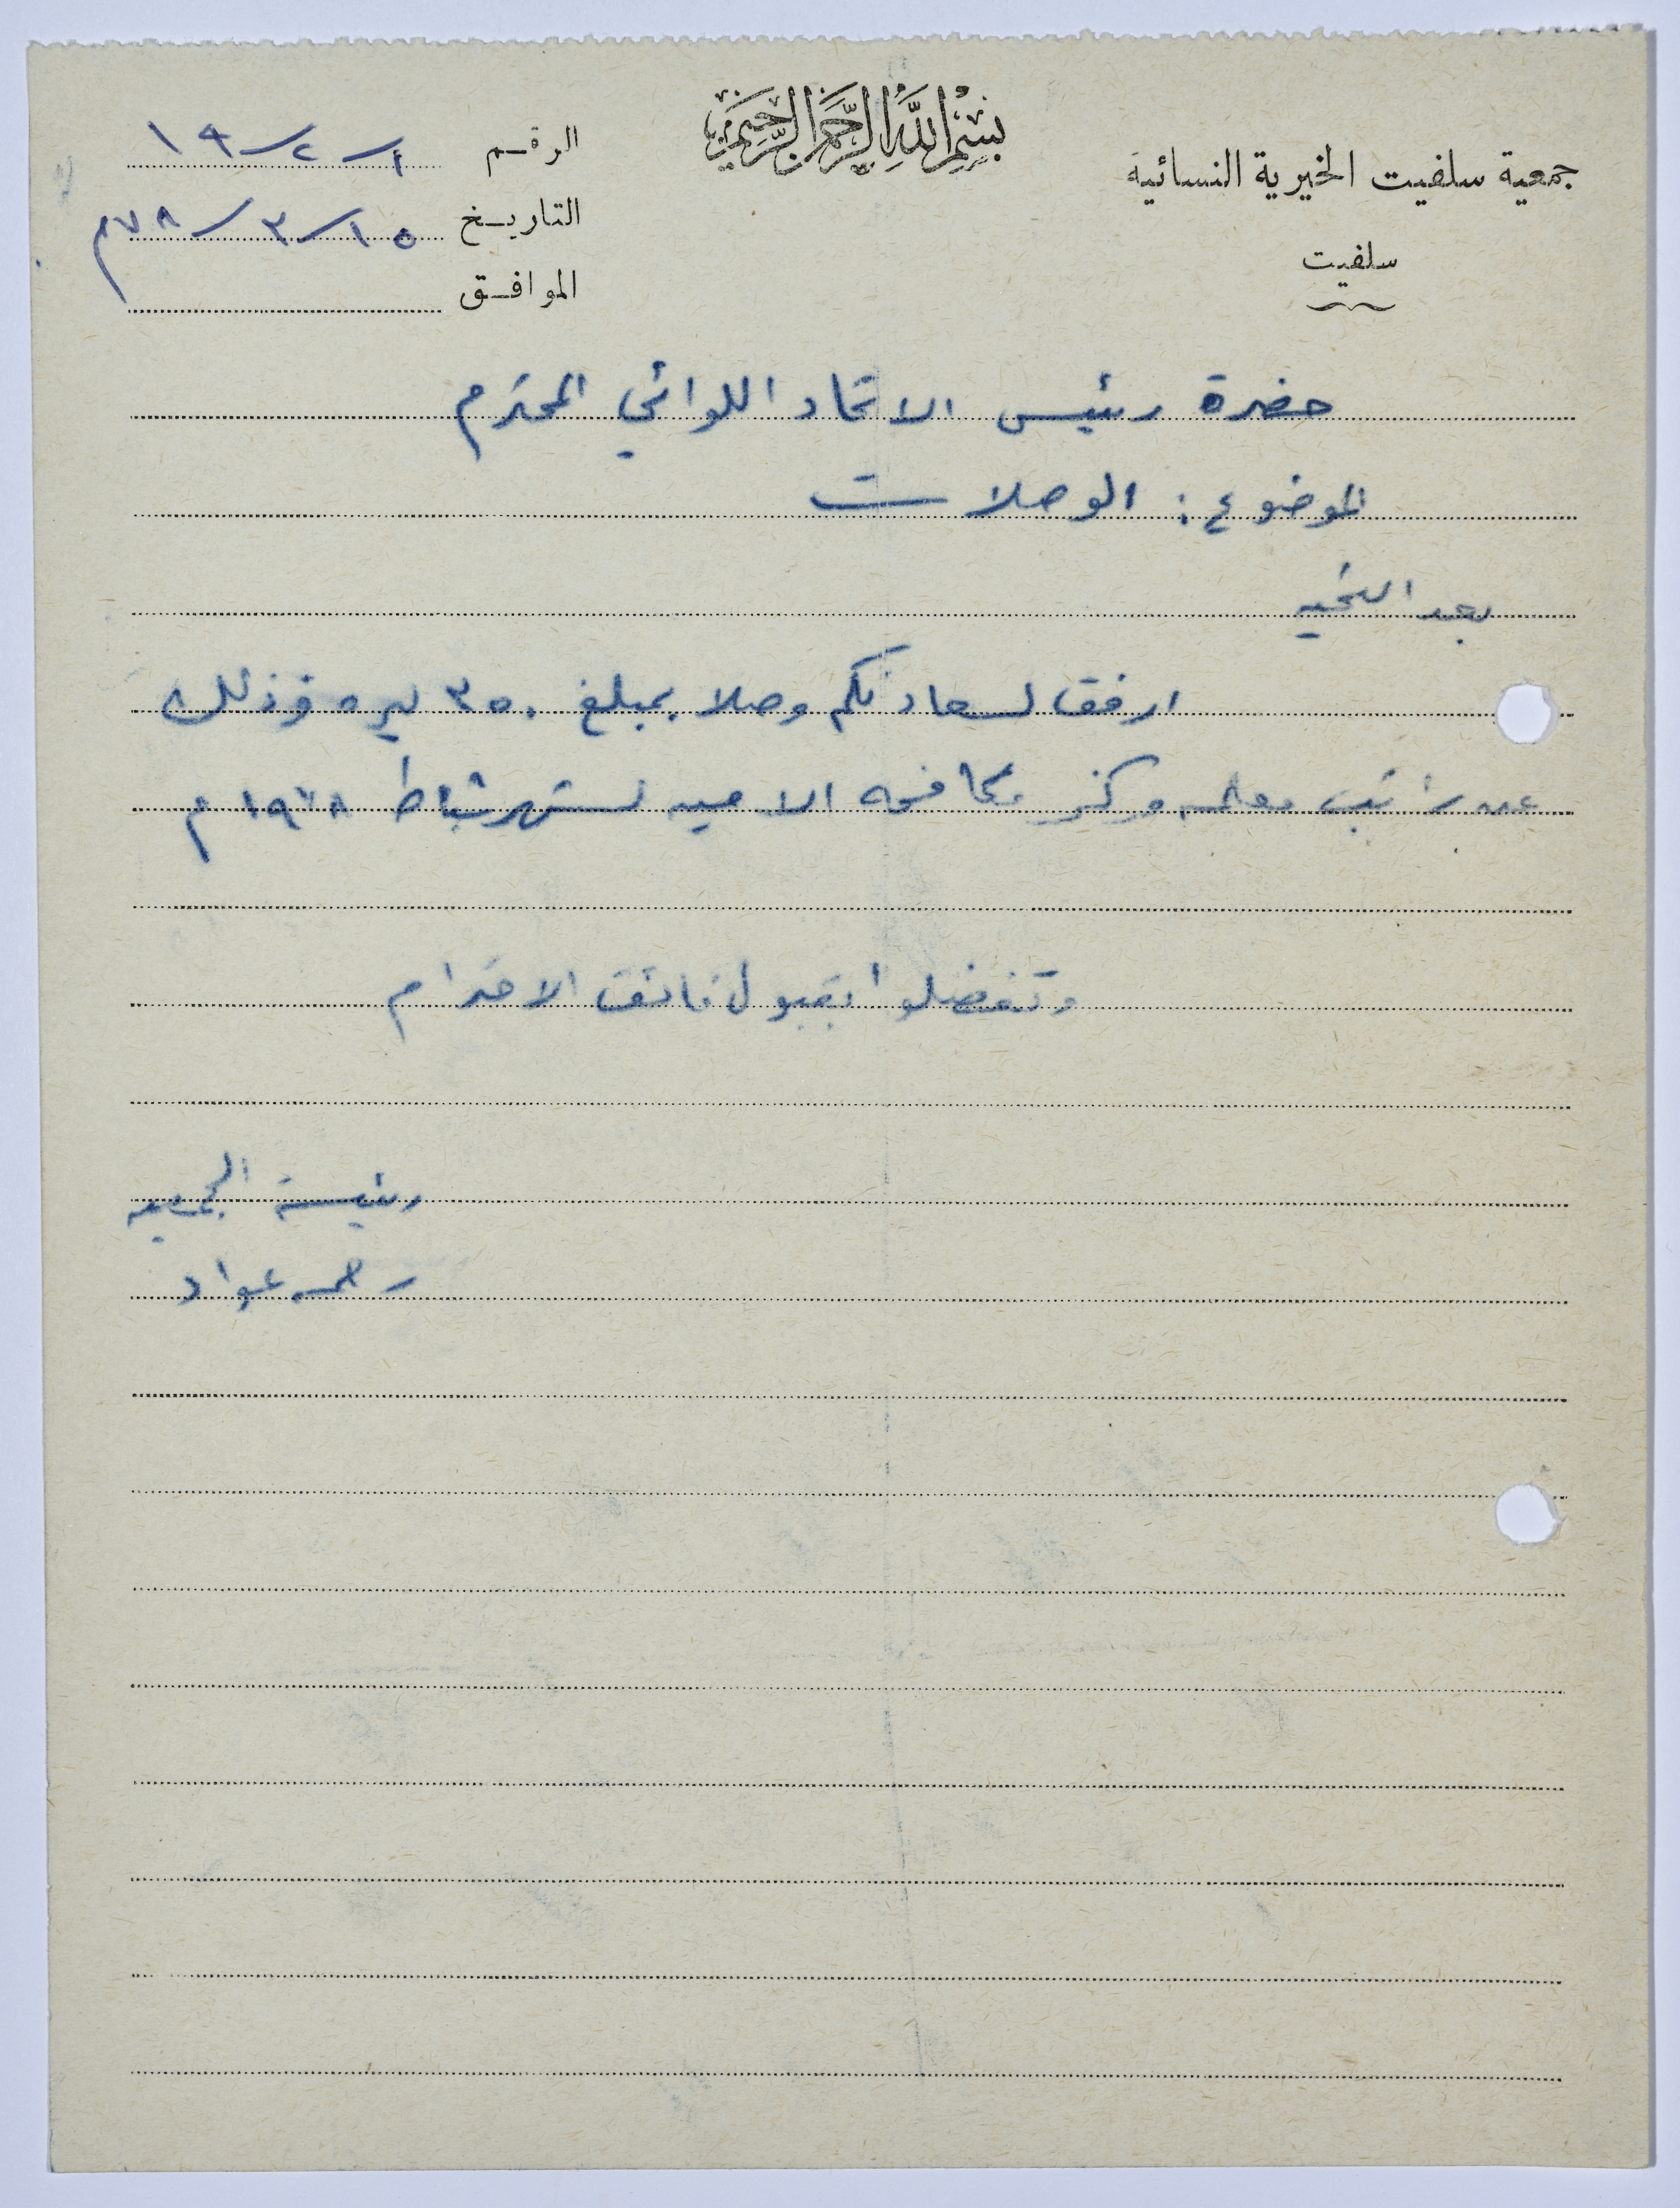 بسم الله الرحمن الرحيم
جمعية سلفيت الخيرية النسائية
سلفيت
الرقم ١/٢/١٩
التاريخ ١٥/٣/٧٨م
الموافق
حضرة رئيس الاتحاد اللوائي المحترم
الموضوع : الوصلات
بعد التحيه
ارفق لسعادتكم وصلا بمبلغ ٣٥٠ ليره وذلك
عن راتب معلمه مركز مكافحه الاميه لشهر شباط ١٩٧٨م
وتفضلوا بقبول فائق الاحترام
رئيسة الجمعيه
رحمه عواد